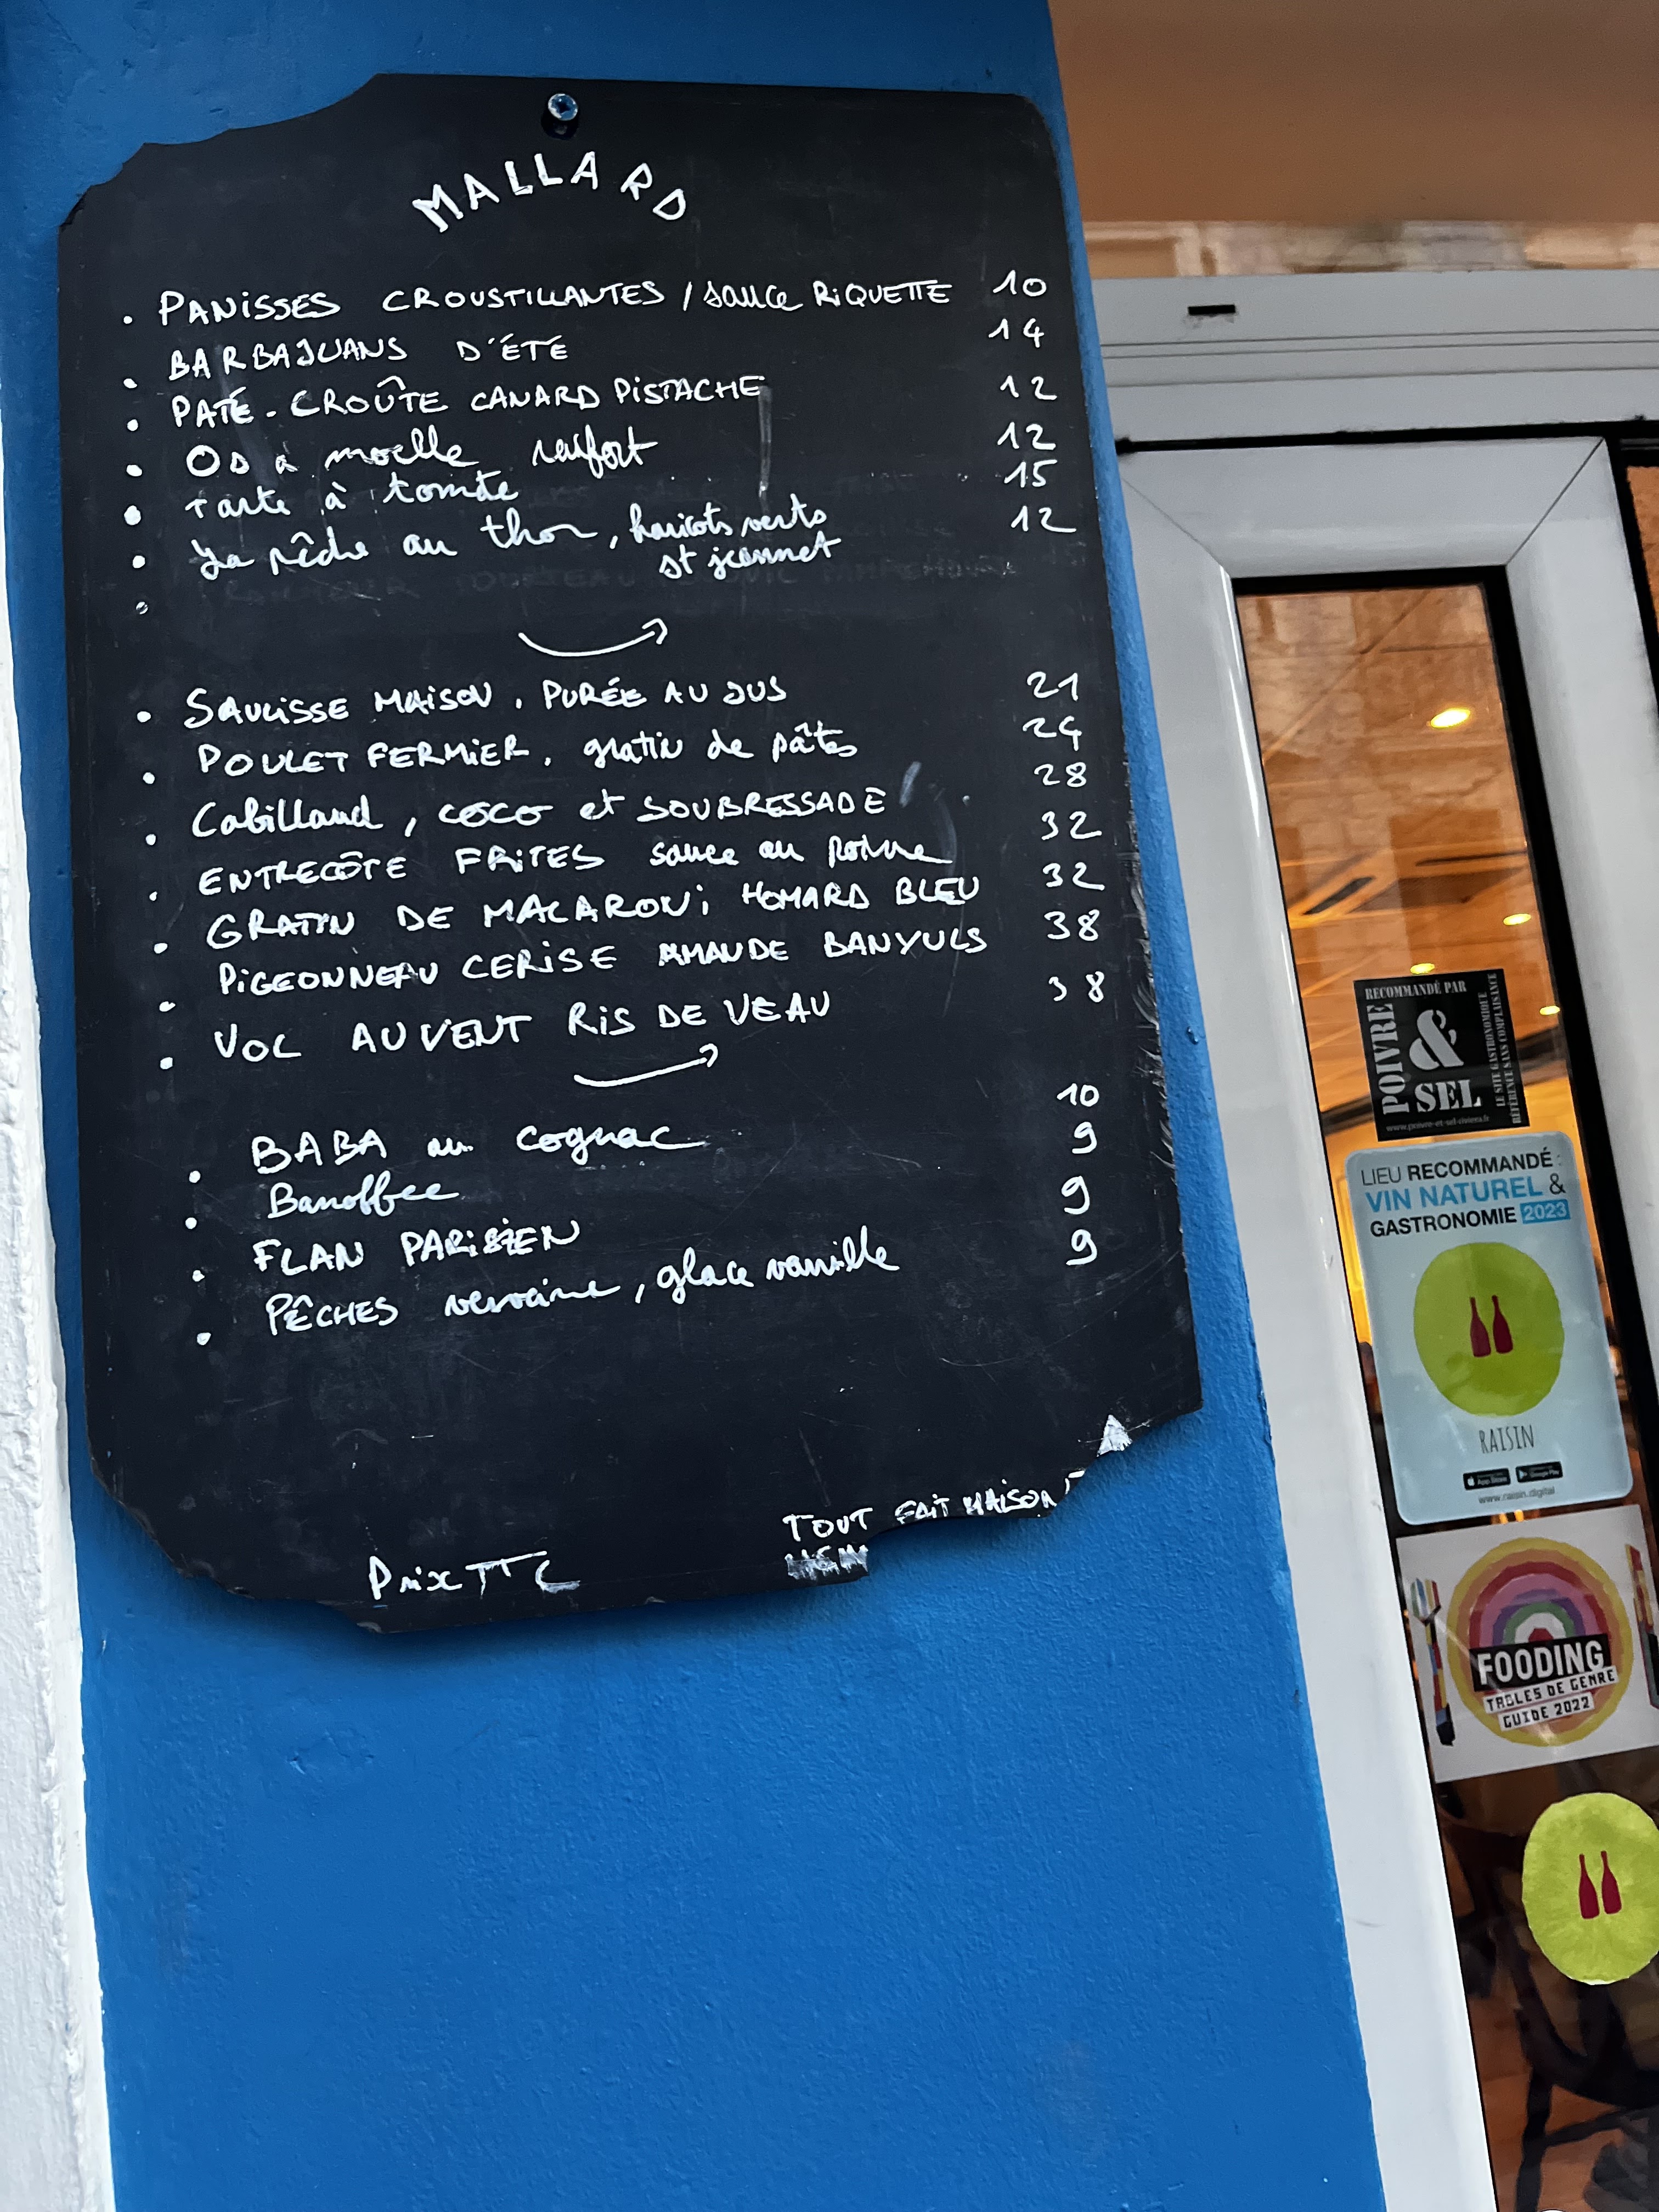 MALLARD
. PANiSSES CROUSTILLANTES / sauce RiQUETTE 10
. BARBAJUANS D'ÉTÉ 14
. PATÉ-CROÛTE CANARD PISTACHE 12
. Os à moelle raifort 12
. tarte à tomate 15
. La pêche au thon, haricots verts 12
st jeannet
.
. SAUCiSSE MAiSON. PURÉE AU JUS 21
. POULET FERMiER. gratin de pâtes 24
. Cabillaud, coco et SOUBRESSADE 28
. ENTRECÔTE FRiTES sauce au poivre 32
. GRATIN DE MACARONi HOMARD BLEU 32
. PiGEONNEAU CERiSE AMANDE BANYULS 38
. VOL AU VENT RiS DE VEAU 38
. BABA au cognac 10
. Banoffee 9
. FLAN PARiSiEN 9
. PÊCHES verveine, glace vanille 9
TOUT FAiT MAiSON
Prix TTC
RECOMMANDÉ PAR
POIVRE
&
SEL
LE SITE GASTRONOMIQUE
RÉFÉRENCE SANS COMPLAISANCE
www.poivre-et-sel-riviera.fr
LIEU RECOMMANDÉ :
VIN NATUREL &
GASTRONOMIE 2023
RAISIN
App Store Google Play
www.raisin.digital
FOODING
TABLES DE GENRE
GUIDE 2022